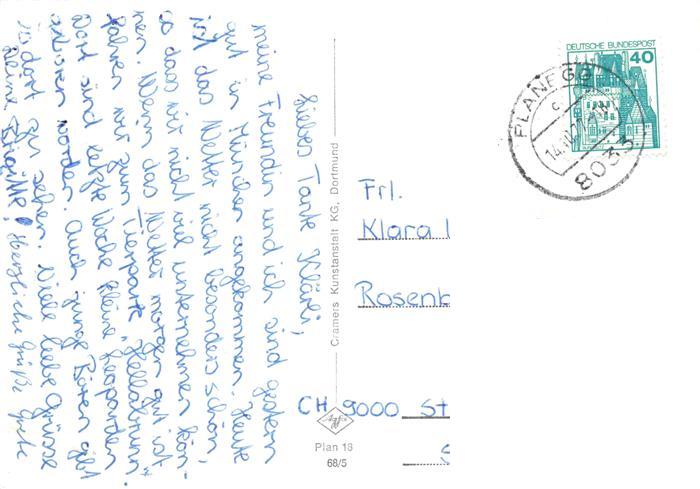 Liebes Tante Klärli,
meine Freundin und ich sind gestern
gut in München angekommen. Heute
ist das Wetter nicht besonders schön,
so dass wir nicht viel unternehmen kön-
nen. Wenn das Wetter morgen gut ist
fahren wir zum Tierpark "Hellabrunn".
Dort sind letzte Woche kleine Leoparden
geboren worden. Auch junge Bären gibt
es dort zu sehen. Viele liebe Grüsse
Deine Brigitte, Herzliche Grüße
Cramers Kunstanstalt KG, Dortmund
DEUTSCHE BUNDESPOST
40
PLANEGG
8033
Frl.
Klara
Rosenb
CH 9000 St
S
Agfa
Plan 18
68/5